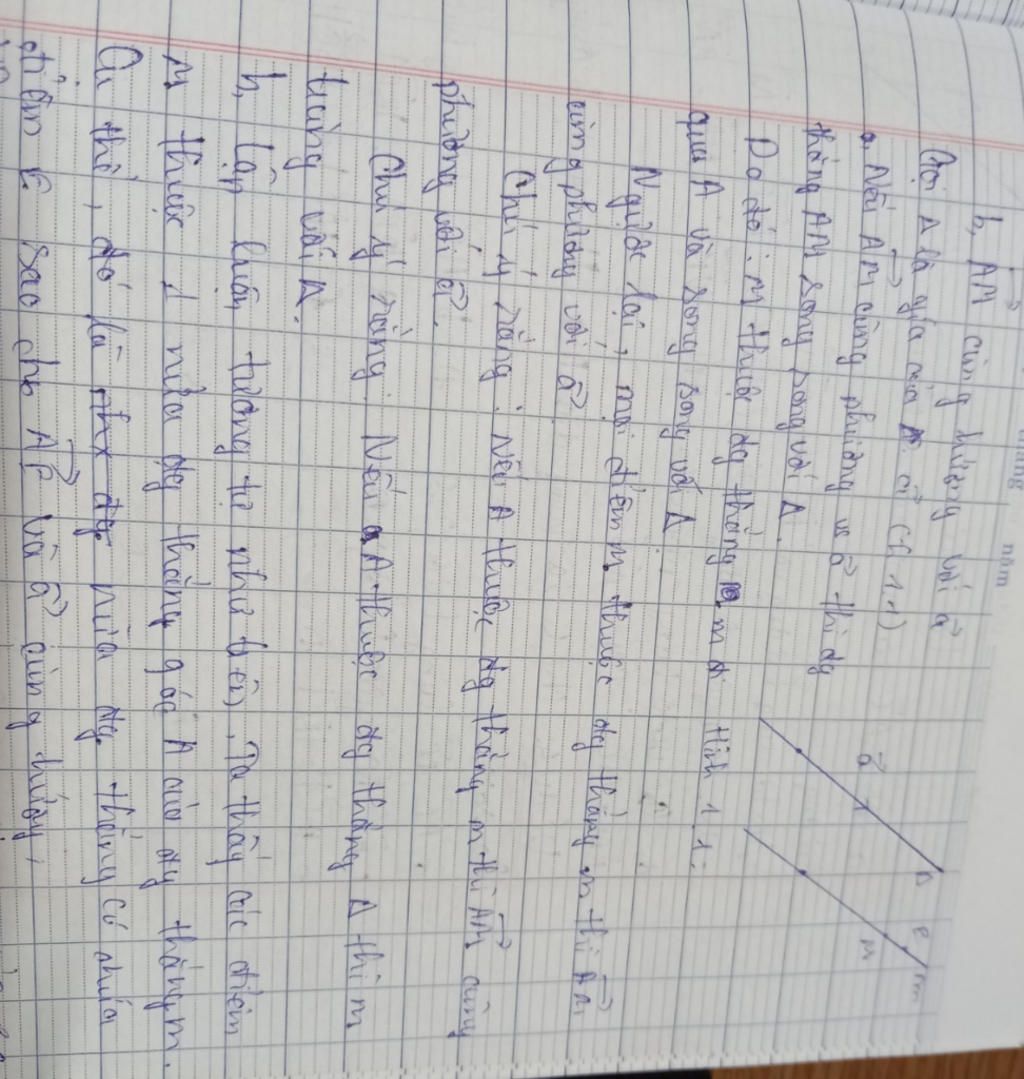 tháng năm
b, AM cùng hướng với a
Gọi Δ là giá của a (h 1.1)
a. Nếu AM cùng phương vs a thì đg
thẳng AM song song với Δ
Do đó: M thuộc đg thẳng m đi Hình 1.1:
qua A và song song với Δ
Ngược lại, mọi điểm M thuộc đg thẳng m thì AM
cùng phương với a
Chú ý rằng: Nếu A thuộc đg thẳng m thì AM cùng
phương với a.
Chú ý rằng: Nếu A thuộc đg thẳng Δ thì m
trùng với Δ.
b, Lập luận tương tự như trên, Ta thấy các điểm
M thuộc 1 nửa đg thẳng gốc A của đg thẳng m.
Cụ thể, đó là nửa đg. thẳng có chứa
điểm E sao cho AE và a cùng hướng,
a
Δ
E
M
m